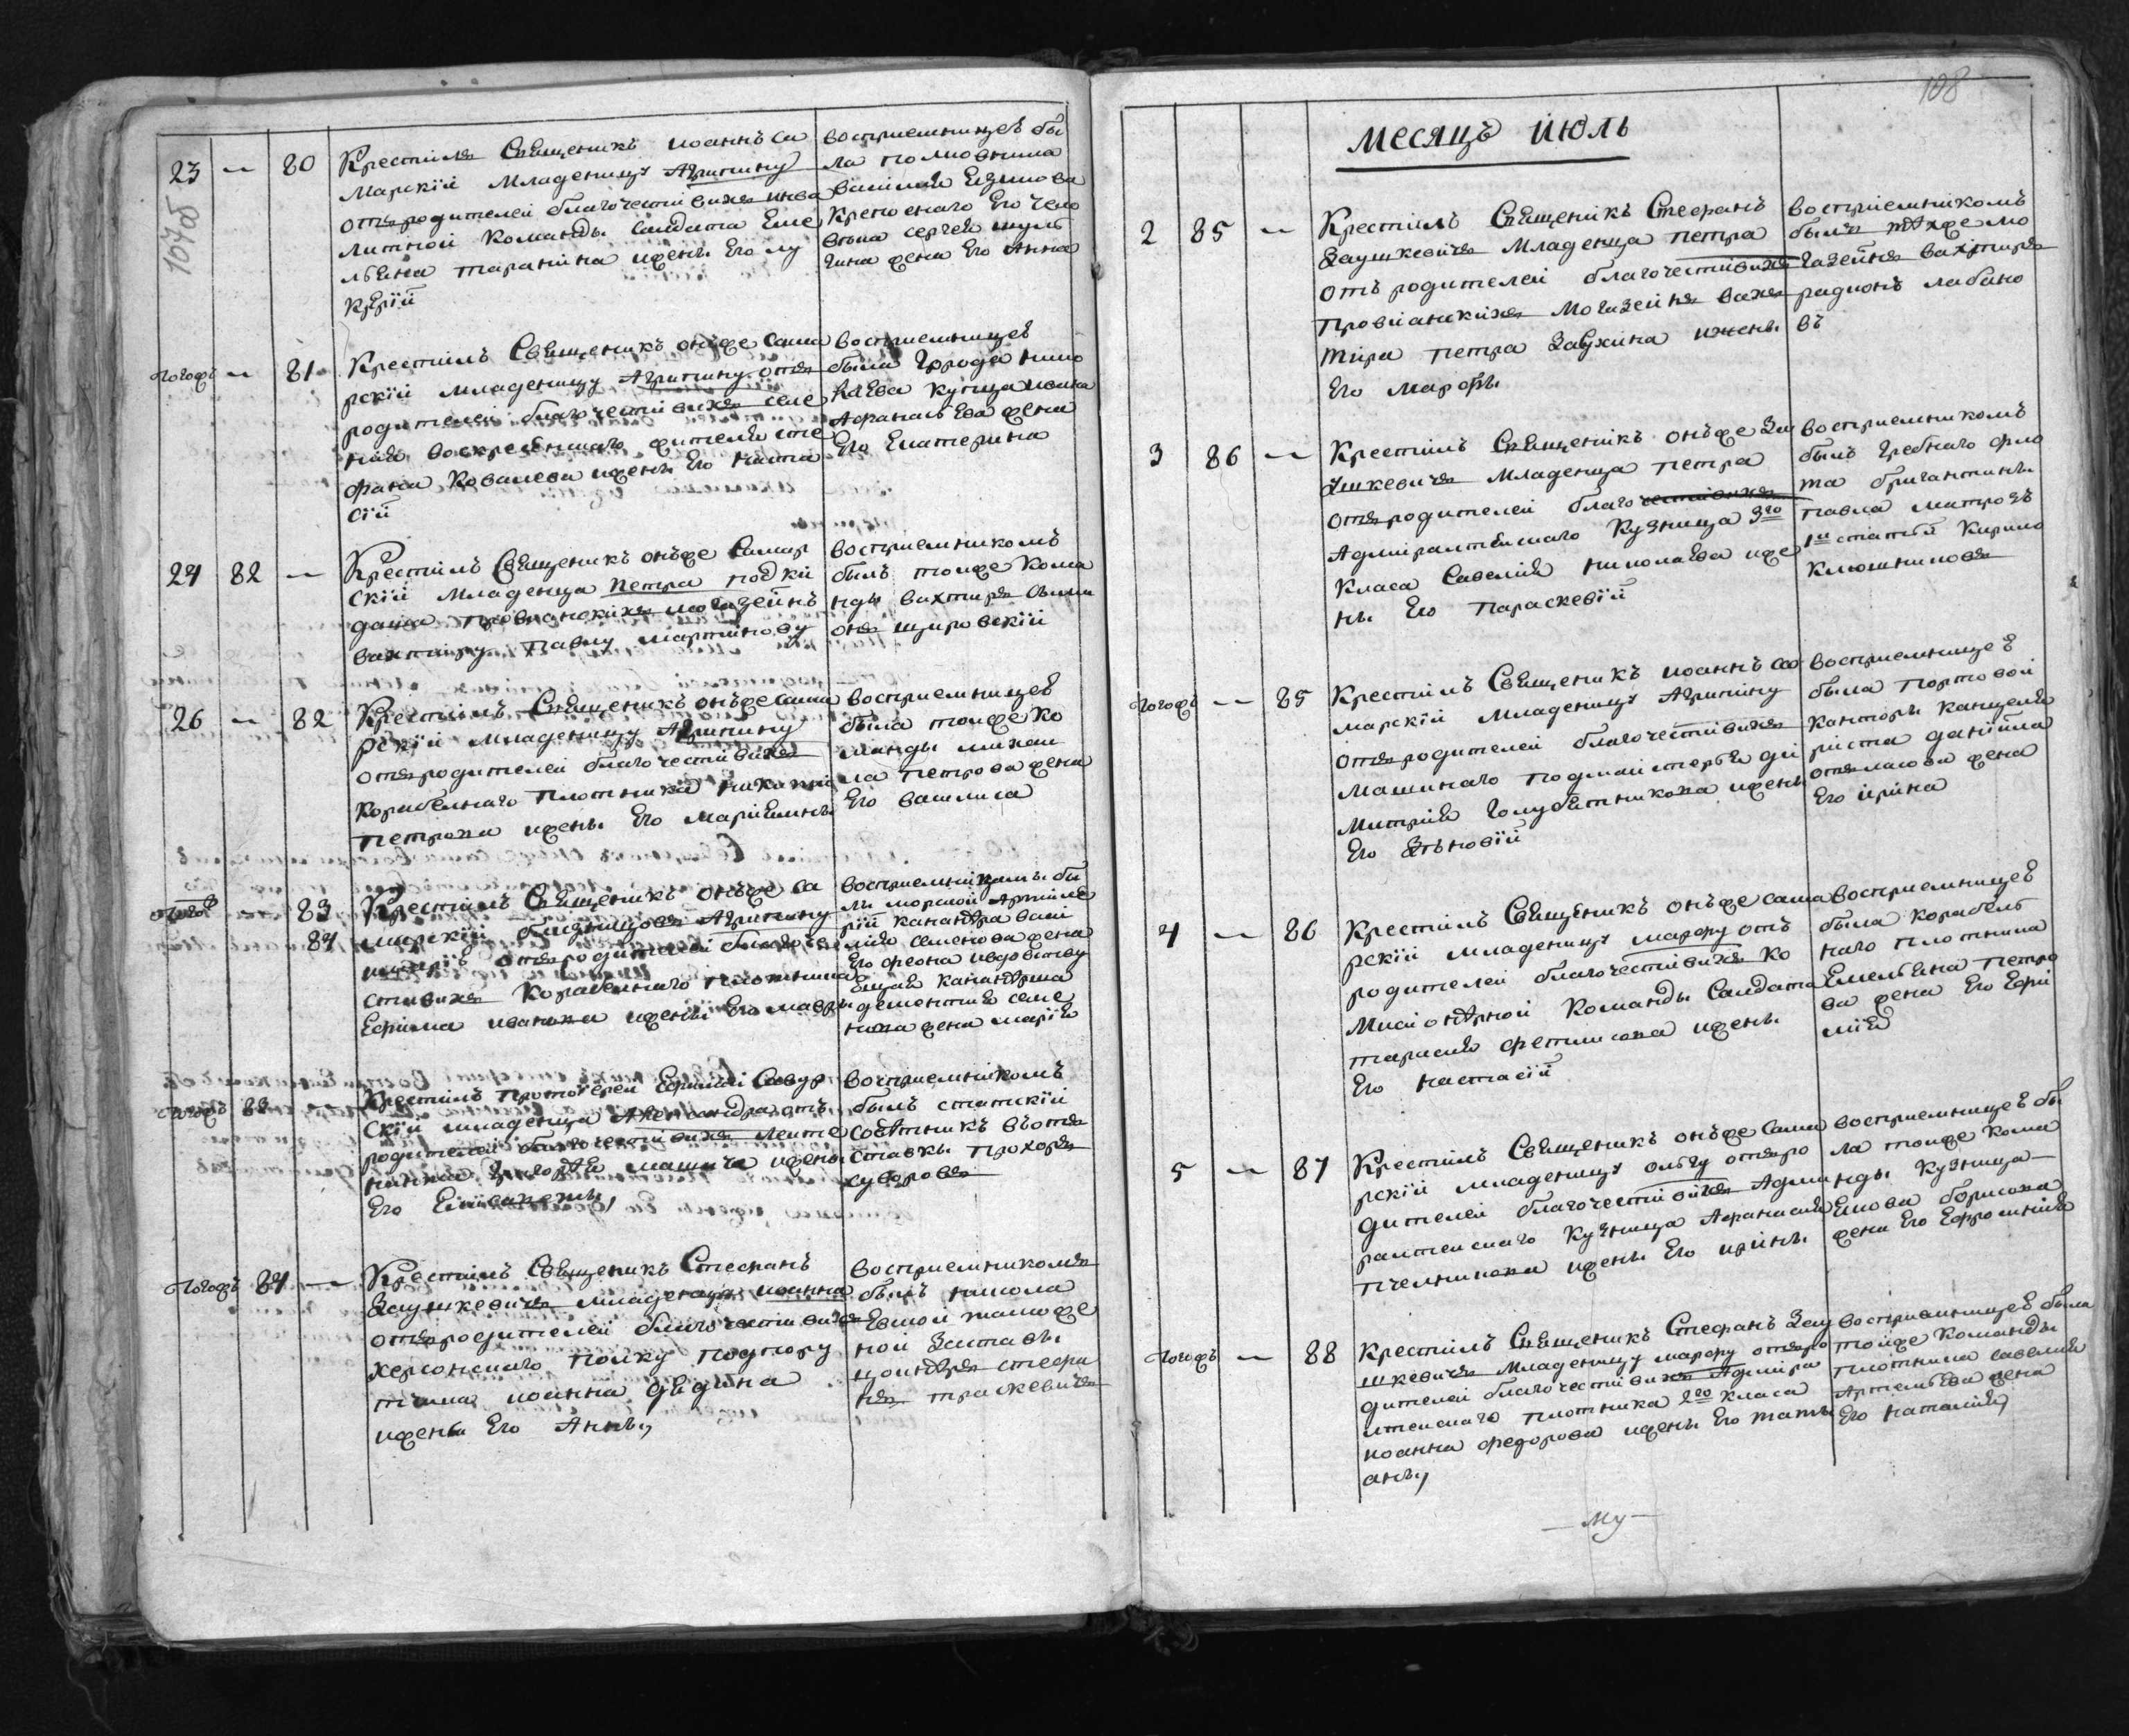 107об
23 — 80
Крестилъ Священикъ иоаннъ са
марскій младеницу Агрипину
отъ родителей благочестивихъ инва
литной команды салдата Еме
льяна таранина ижены Его лу
керіи
восприемницеѣ бы
ла полковника
василия
крепоснаго Его чело
века сергея шуль
гина жена Его Анна
тогожъ — 81
Крестилъ Священикъ онъже сама
рскій младеницу Агрипину отъ
родителей благочестивихъ селе
ния воскресенскаго жителя сте
фана Ковалева ижены Его наста
сіи
восприемницеѣ
была города нико
лаева купца ивана
Афанасьева жена
Его Екатерина
24 82 —
Крестилъ Священикъ онъже самар
скій младенца петра подки
даша провианскихъ могазейнъ
вахтиру павлу мартинову
восприемникомъ
былъ тоиже кома
нды вахтиръ
онъ щировскій
26 — 82
Крестилъ Священикъ онъже сама
рскій младеницу Агрипину
отъ родителей благочестивихъ
корабелнаго плотника
петрова ижены Его
восприемницеѣ
была тоиже ко
манды михаи
ла петрова жена
Его василиса
тогожъ — 83
84
Крестилъ Священикъ онъже са
марскій близнецовъ Агрипину
имарію отъ родителей благоче
стивихъ Корабелнаго плотника
Ефима иванова ижены Его мавры
восприемниками бы
ли морской Артиле
ріи канандѣра васи
лия семенова жена
Его феона ивдовству
ющая канандѣрша
дементия семе
нова жена марія
тогожъ 83
Крестилъ протоіерей Ефимій Савур
скій младенца Александра отъ
родителей благочестивихъ лейте
нанта григорѣя ижены
Его Елисаветы,
восприемникомъ
былъ статскій
совѣтникъ въотъ
ставкѣ прохоръ
суворовъ
тогожъ 84 —
Крестилъ Священикъ Стефанъ
Заушкевичъ младенца иоанна
отъ родителей благочестивихъ
херсонскаго полку подпору
тчика иоанна дедина
ижены Его Анны,
восприемникомъ
былъ никола
евской таможе
ной заставы
цоиндѣръ стефа
нъ траскевичъ
108
месяцъ июль
2 85 —
Крестилъ Священикъ Стефанъ
Заушкевичъ младенца петра
отъ родителей благочестивихъ
провианскихъ могазейнъ вахъ
тира петра Завухина ижены
Его марфы
восприемникомъ
былъ тѣхже мо
газейнъ вахтиръ
радионъ лабано
въ
3 86 —
Крестилъ Священикъ онъже За
ушкевичъ младенца петра
отъ родителей благочестивихъ
Адмиралтейскаго кузнеца 3го
класа Савелия николаева иже
ны Его параскевіи
восприемникомъ
былъ гребнаго фло
та бригантины
павла матрозъ
1й статьи кирило
ключниковъ
тогожъ — 85
Крестилъ Священикъ иоаннъ са
марскій младеницу Агрипину
отъ родителей благочестивихъ
машинаго подмайстерья ди
митрия голубятникова ижены
Его Зѣновіи
восприемницеѣ
была портовой
канторы канцеля
риста даніила
жена
Его ирина
4 — 86
Крестилъ Священикъ онъже сама
рскій младеницу марфу отъ
родителей благочестивихъ ко
мисионѣрной команды салдата
тарасия фетисова ижены
Его настасіи
восприемницеѣ
была корабель
наго плотника
Емельяна петро
ва жена Его Ефи
мия
5 — 87
Крестилъ Священикъ онъже сама
рскій младеницу олгу отъ ро
дителей благочестивихъ Адми
ралтенскаго кузнеца Афанасия
пчелникова ижены Его ирины
восприемницеѣ бы
ла тоиже кома
нды кузнеца
якова борисова
жена Его Ефросиния
тогожъ — 88
Крестилъ Священикъ Стефанъ Зау
шкевичъ младеницу марфу отъ ро
дителей благочестивихъ Адмира
лтенскаго плотника 2го класа
иоанна федорова ижены Его тати
аны,
восприемницеѣ была
тоиже команды
плотника савелия
Артемьева жена
Его наталия,
— му —